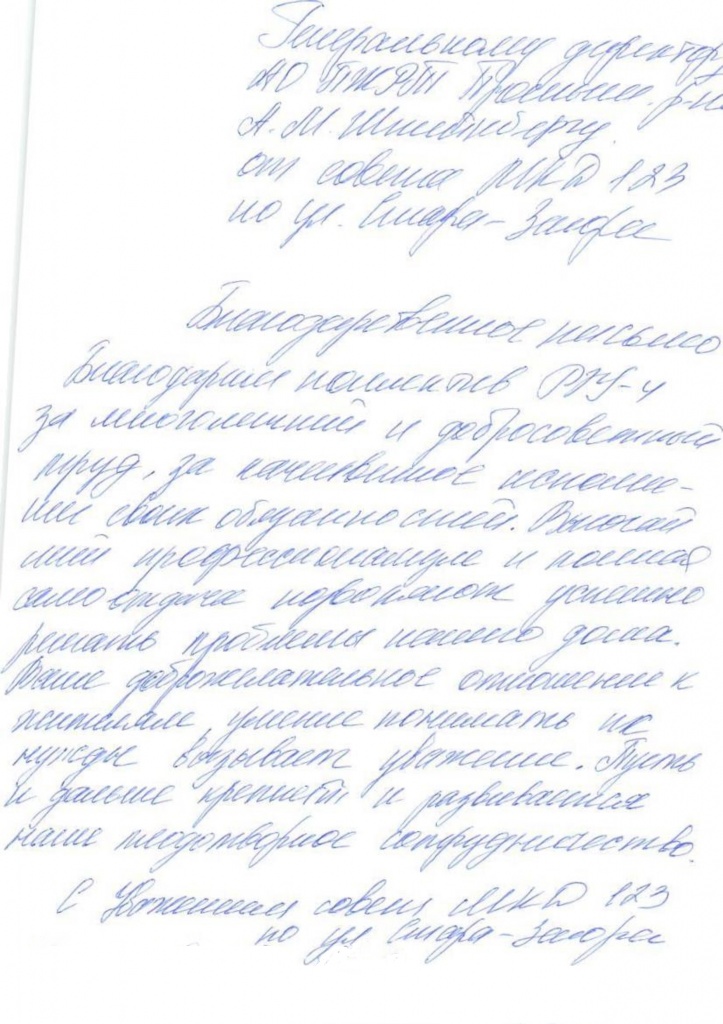 Генеральному директору
АО ПЖРТ Промышл. р-на
А. М. Штейнбергу.
от совета МКД 123
по ул. Стара-Загора
Благодарственное письмо
Благодарим коллектив РЭУ-4
за многолетний и добросовестный
труд, за качественное исполне-
ние своих обязанностей. Высочай
ший профессионализм и полная
самоотдача позволяют успешно
решать проблемы нашего дома.
Ваше доброжелательное отношение к
жителям, умение понимать их
нужды вызывает уважение. Пусть
и дальше крепнет и развивается
наше плодотворное сотрудничество.
С Уважением совет МКД 123
по ул Стара-Загора